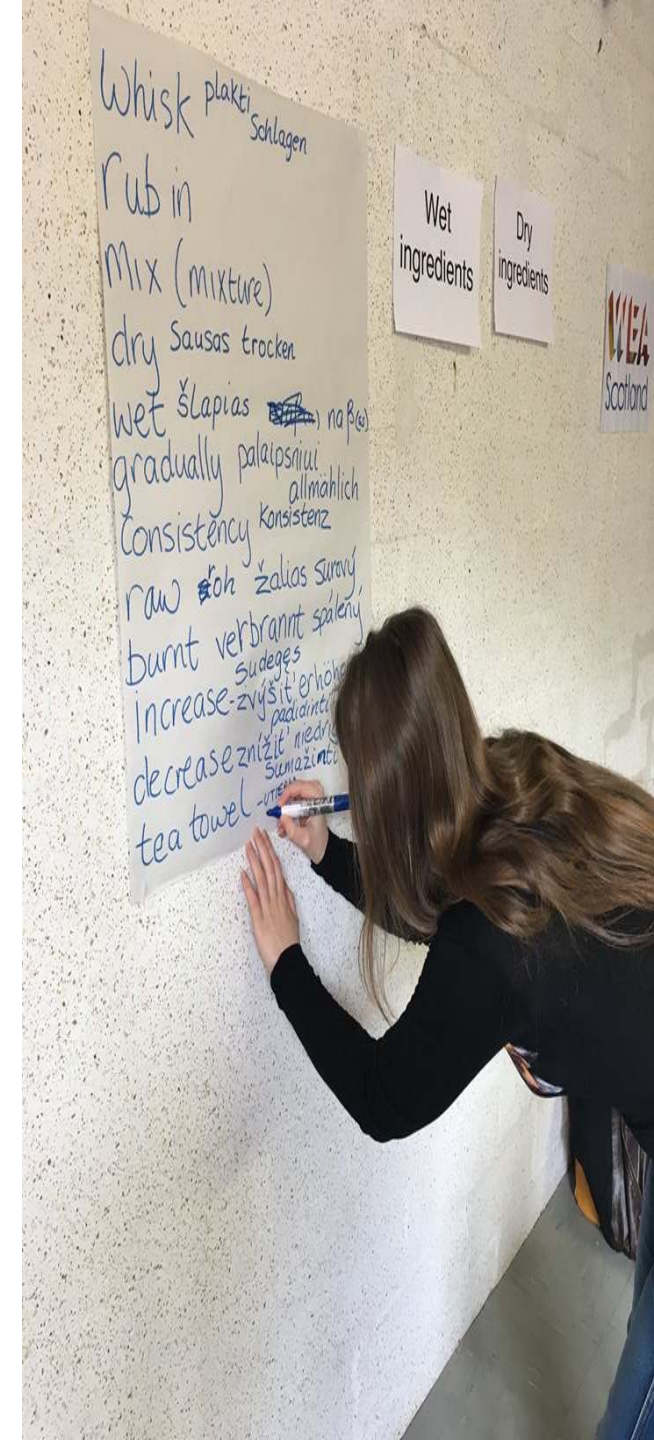 Whisk plakti
Schlagen
rub in
Mix (mixture)
dry Sausas trocken
wet šlapias naß(es)
gradually palaipsniui
allmählich
Consistency Konsistenz
raw roh žalias surový
burnt verbrannt spálený
sudegęs
increase-zvýšiť erhöhe
padidinti
decrease znížiť niedri
Sumažinti
tea towel
Wet
ingredients
Dry
ingredients
WEA
Scotland